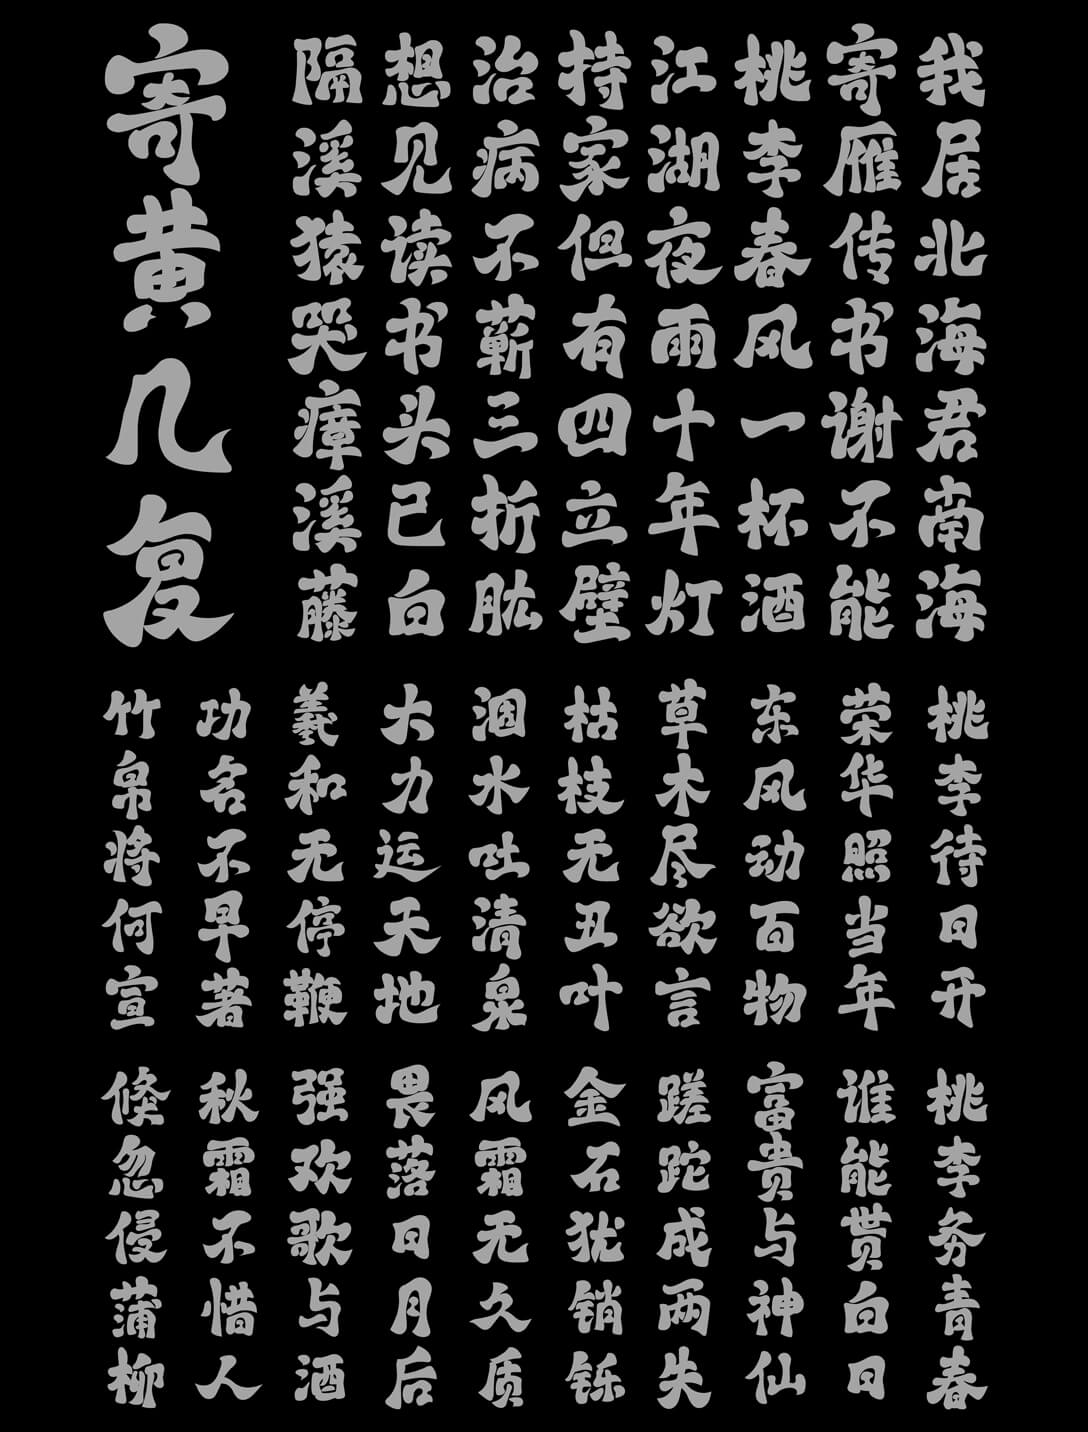 寄黄几复
我居北海君南海
寄雁传书谢不能
桃李春风一杯酒
江湖夜雨十年灯
持家但有四立壁
治病不蕲三折肱
想见读书头已白
隔溪猿哭瘴溪藤
桃李待日开
荣华照当年
东风动百物
草木尽欲言
枯枝无丑叶
涸水吐清泉
大力运天地
羲和无停鞭
功名不早著
竹帛将何宣
桃李务青春
谁能贳白日
富贵与神仙
蹉跎成两失
金石犹销铄
风霜无久质
畏落日月后
强欢歌与酒
秋霜不惜人
倏忽侵蒲柳